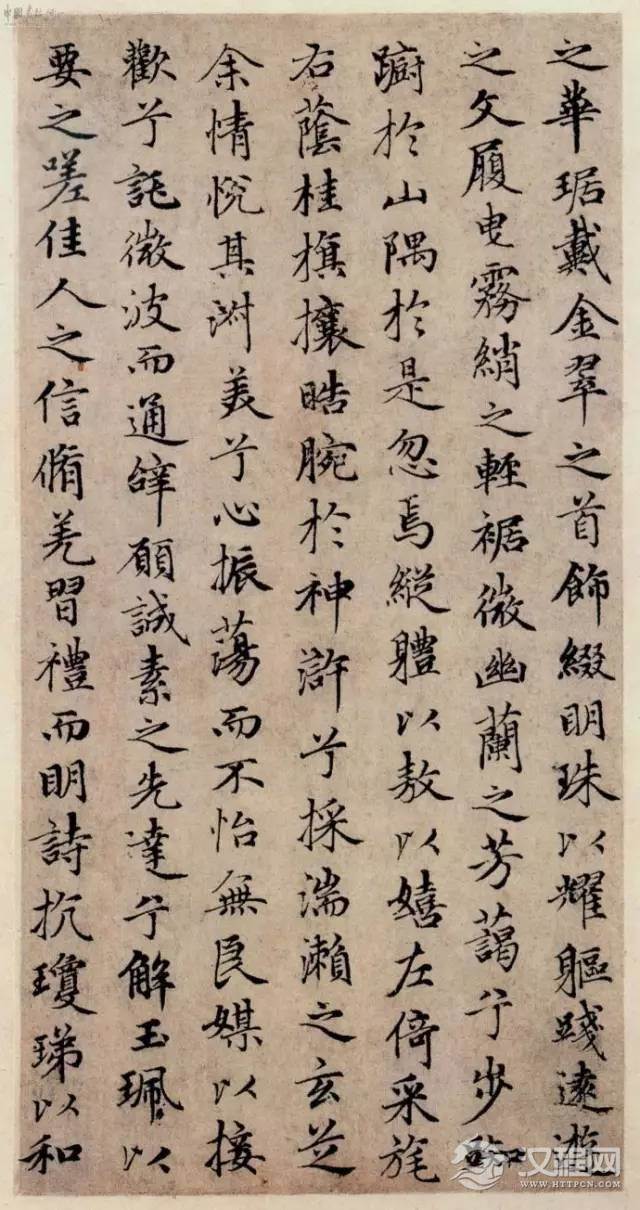 之華琚戴金翠之首飾綴明珠以耀軀踐遠遊
之文履曳霧綃之輕裾微幽蘭之芳藹兮步踟
蹰於山隅於是忽焉縱軆以敖以嬉左倚采旄
右蔭桂旗攘皓腕於神滸兮採湍瀨之玄芝
余情悅其淋美兮心振蕩而不怡無良媒以接
歡兮託微波而通辝願誠素之先達兮解玉珮以
要之嗟佳人之信脩羌習禮而明詩抗瓊珶以和
汉程网
HTTPCN.COM